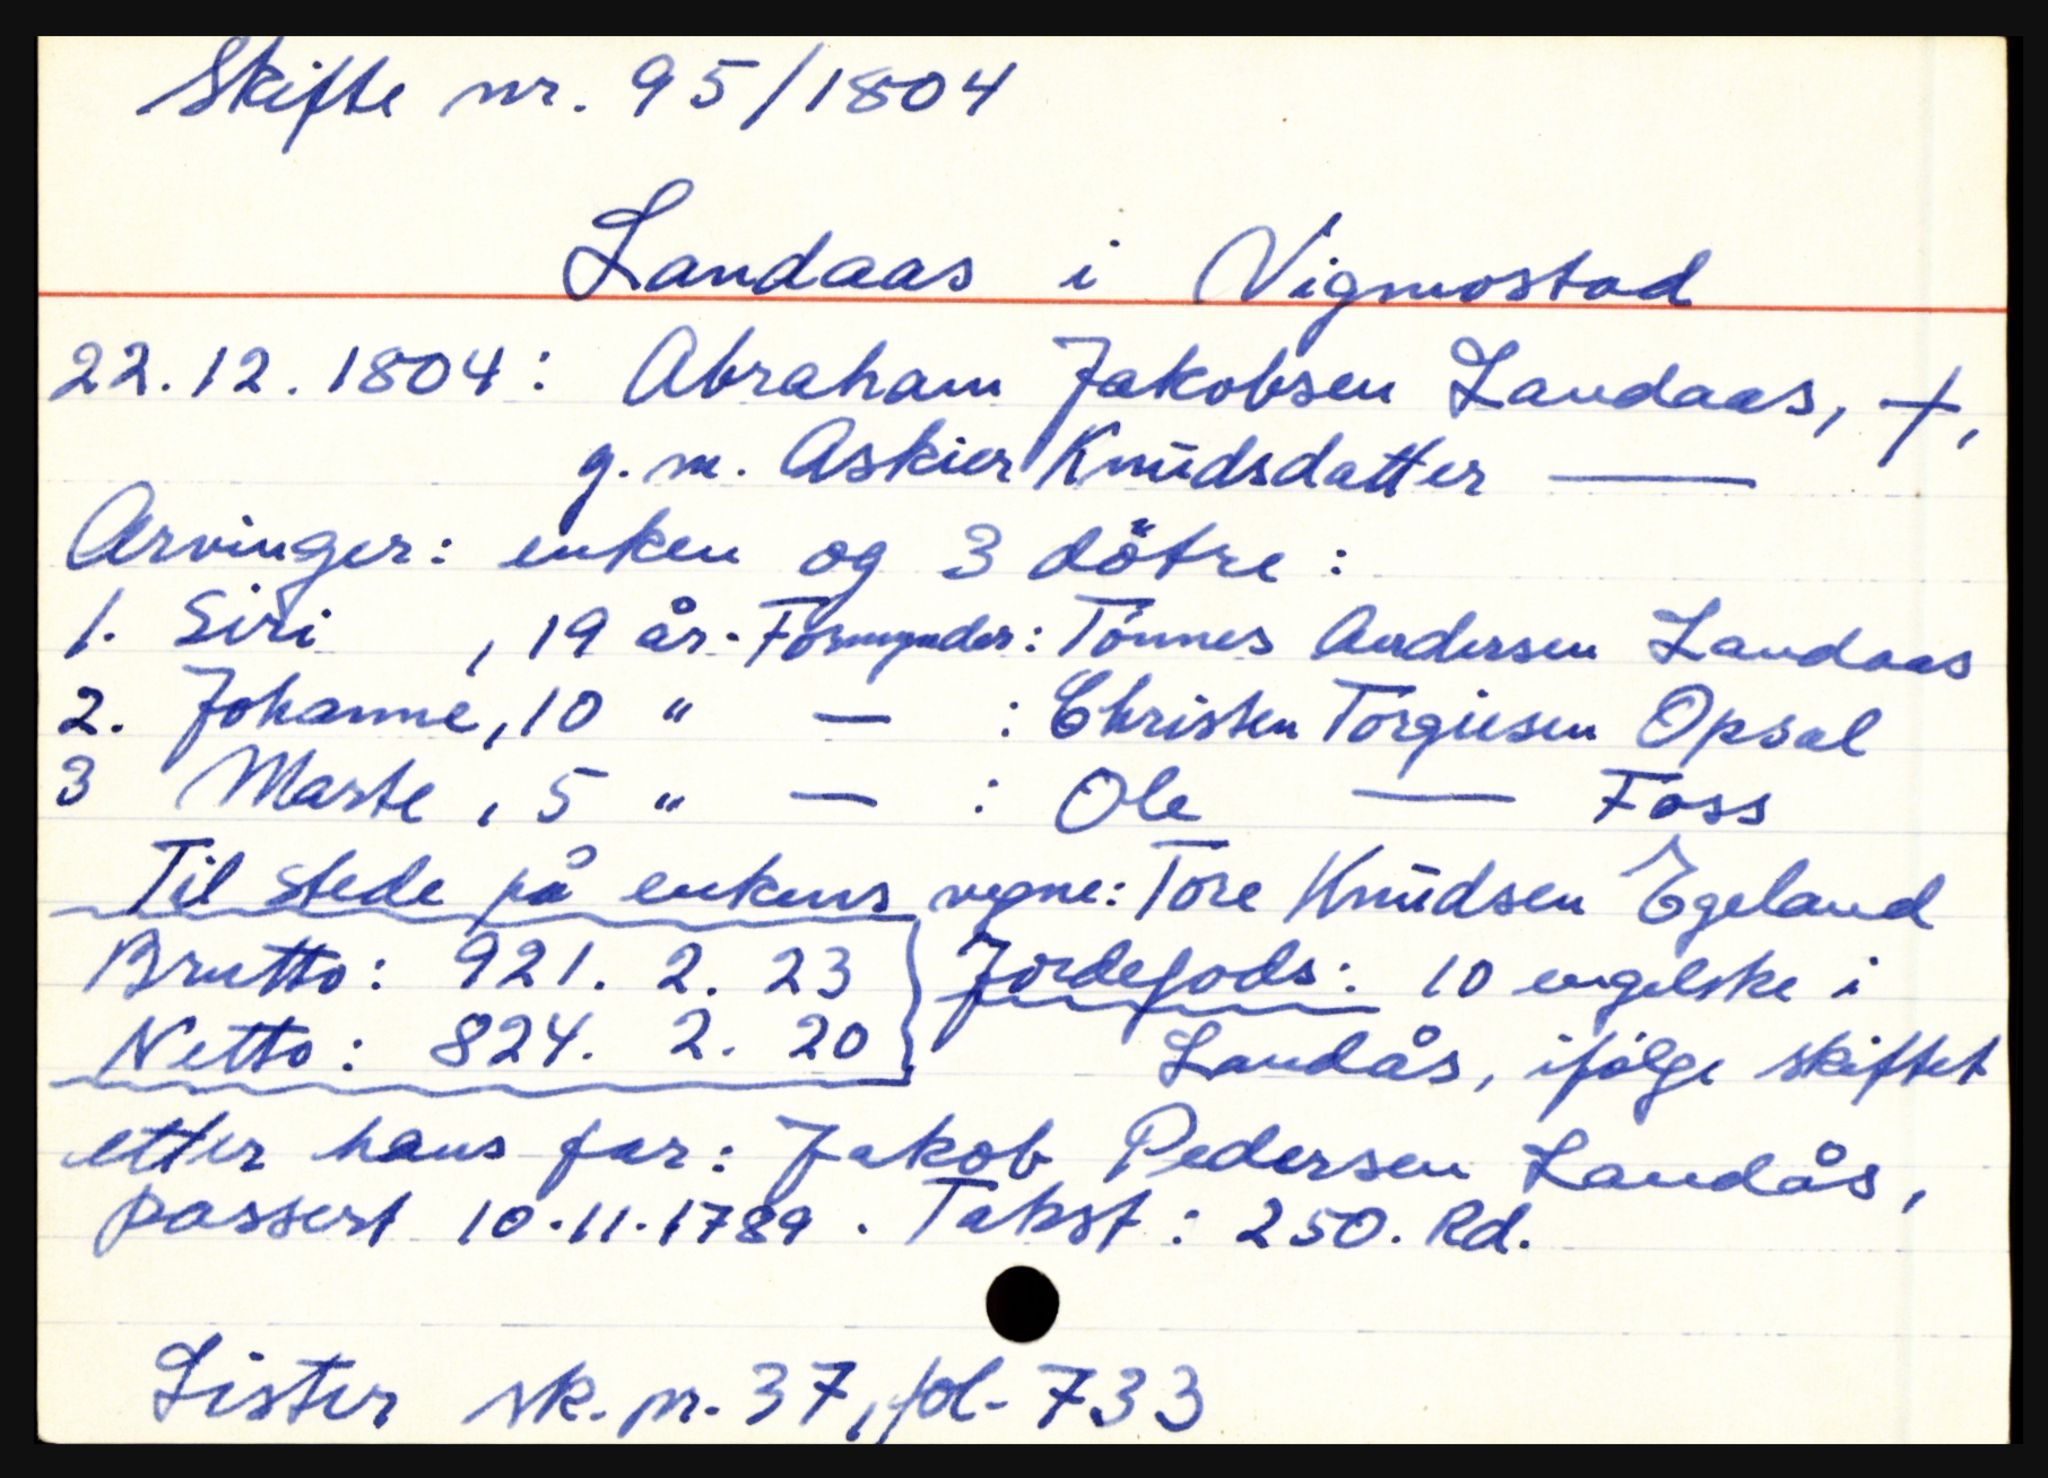 Skifte nr. 95/1804
Landaas i Vigmostad
22.12.1804: Abraham Jakobsen Landaas, +,
g. m. Askier Knūdsdatter —
Arvinger: enken og 3 dötre:
1. Siri , 19 år. Formynder: Tönnes Andersen Landaas
2. Johanne, 10 " — : Christen Torgiesen Opsal
3 Marte, 5 " — : Ole — Foss
Til stede på enkens vegne: Tore Knūdsen Egeland
Brutto: 921. 2. 23 } Jordegods: 10 engelske i
Netto: 824. 2. 20 Landås, ifölge skiftet
etter hans far: Jakob Pedersen Landås,
passert 10.11.1789. Takst: 250. Rd.
Lister sk. pr. 37, fol. 733